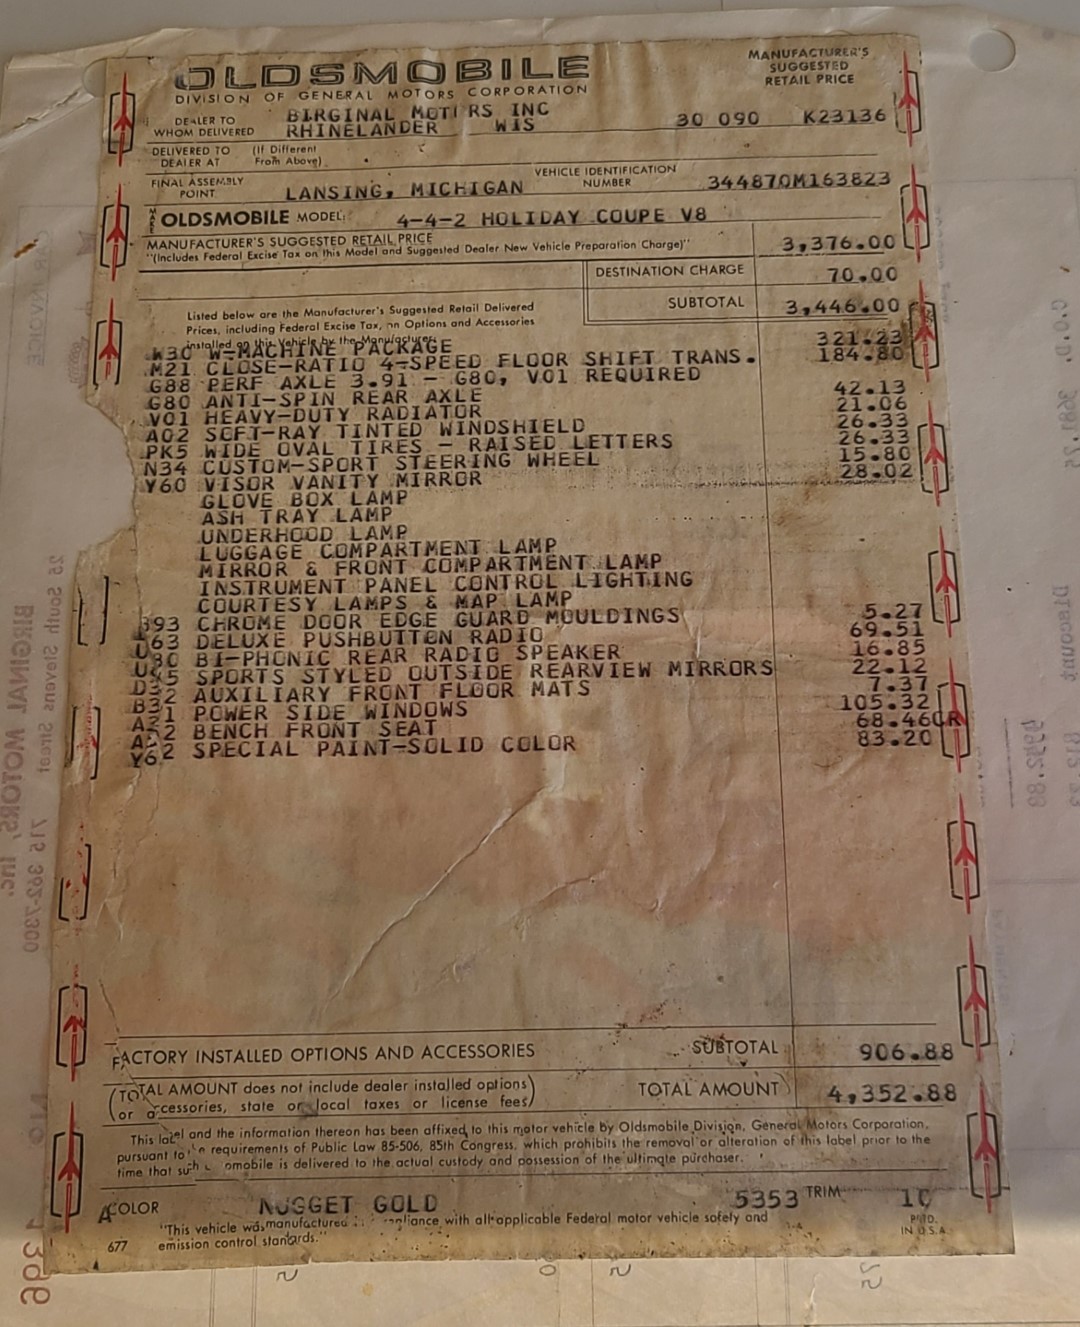 OLDSMOBILE
DIVISION OF GENERAL MOTORS CORPORATION
MANUFACTURER'S
SUGGESTED
RETAIL PRICE
DEALER TO
WHOM DELIVERED
BIRGINAL MOTORS INC
RHINELANDER WIS
30 090 K23136
DELIVERED TO (If Different
DEALER AT From Above)
FINAL ASSEMBLY
POINT
LANSING, MICHIGAN
VEHICLE IDENTIFICATION
NUMBER
344870M163823
OLDSMOBILE MODEL: 4-4-2 HOLIDAY COUPE V8
MANUFACTURER'S SUGGESTED RETAIL PRICE
"(Includes Federal Excise Tax on this Model and Suggested Dealer New Vehicle Preparation Charge)" 3,376.00
DESTINATION CHARGE 70.00
SUBTOTAL 3,446.00
Listed below are the Manufacturer's Suggested Retail Delivered
Prices, including Federal Excise Tax, on Options and Accessories
installed on this Vehicle by the Manufacturer
W30 W-MACHINE PACKAGE 321.23
M21 CLOSE-RATIO 4-SPEED FLOOR SHIFT TRANS. 184.80
G88 PERF AXLE 3.91 - G80, V01 REQUIRED
G80 ANTI-SPIN REAR AXLE 42.13
V01 HEAVY-DUTY RADIATOR 21.06
A02 SOFT-RAY TINTED WINDSHIELD 26.33
PK5 WIDE OVAL TIRES - RAISED LETTERS 26.33
N34 CUSTOM-SPORT STEERING WHEEL 15.80
Y60 VISOR VANITY MIRROR 28.02
GLOVE BOX LAMP
ASH TRAY LAMP
UNDERHOOD LAMP
LUGGAGE COMPARTMENT LAMP
MIRROR & FRONT COMPARTMENT LAMP
INSTRUMENT PANEL CONTROL LIGHTING
COURTESY LAMPS & MAP LAMP
B93 CHROME DOOR EDGE GUARD MOULDINGS 5.27
U63 DELUXE PUSHBUTTON RADIO 69.51
U80 BI-PHONIC REAR RADIO SPEAKER 16.85
SPORTS STYLED OUTSIDE REARVIEW MIRRORS 22.12
B32 AUXILIARY FRONT FLOOR MATS 7.37
A31 POWER SIDE WINDOWS 105.32
BENCH FRONT SEAT 68.46CR
Y62 SPECIAL PAINT-SOLID COLOR 83.20
FACTORY INSTALLED OPTIONS AND ACCESSORIES SUBTOTAL 906.88
(TOTAL AMOUNT does not include dealer installed options
or accessories, state or local taxes or license fees) TOTAL AMOUNT 4,352.88
This label and the information thereon has been affixed to this motor vehicle by Oldsmobile Division, General Motors Corporation,
pursuant to requirements of Public Law 85-506, 85th Congress, which prohibits the removal or alteration of this label prior to the
time that such omobile is delivered to the actual custody and possession of the ultimate purchaser.
COLOR NUGGET GOLD 5353 TRIM 10
"This vehicle was manufactured in compliance with all applicable Federal motor vehicle safety and
emission control standards."
677
PRTD.
IN U.S.A.
BIRGINAL MOTORS, Inc.
25 South Stevens Street 715 362-7300
INVOICE
C.O.D. 3681.75
Discount
4352.88
1396